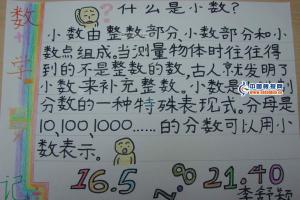 什么是小数?
小数由整数部分、小数部分和小
数点组成。当测量物体时往往得
到的不是整数的数,古人就发明了
小数来补充整数。小数是
分数的一种特殊表现式。分母是
10,100,1000……的分数可以用小
数表示。
16.5
21.40
李舒颖
数
学
记
中国教育网